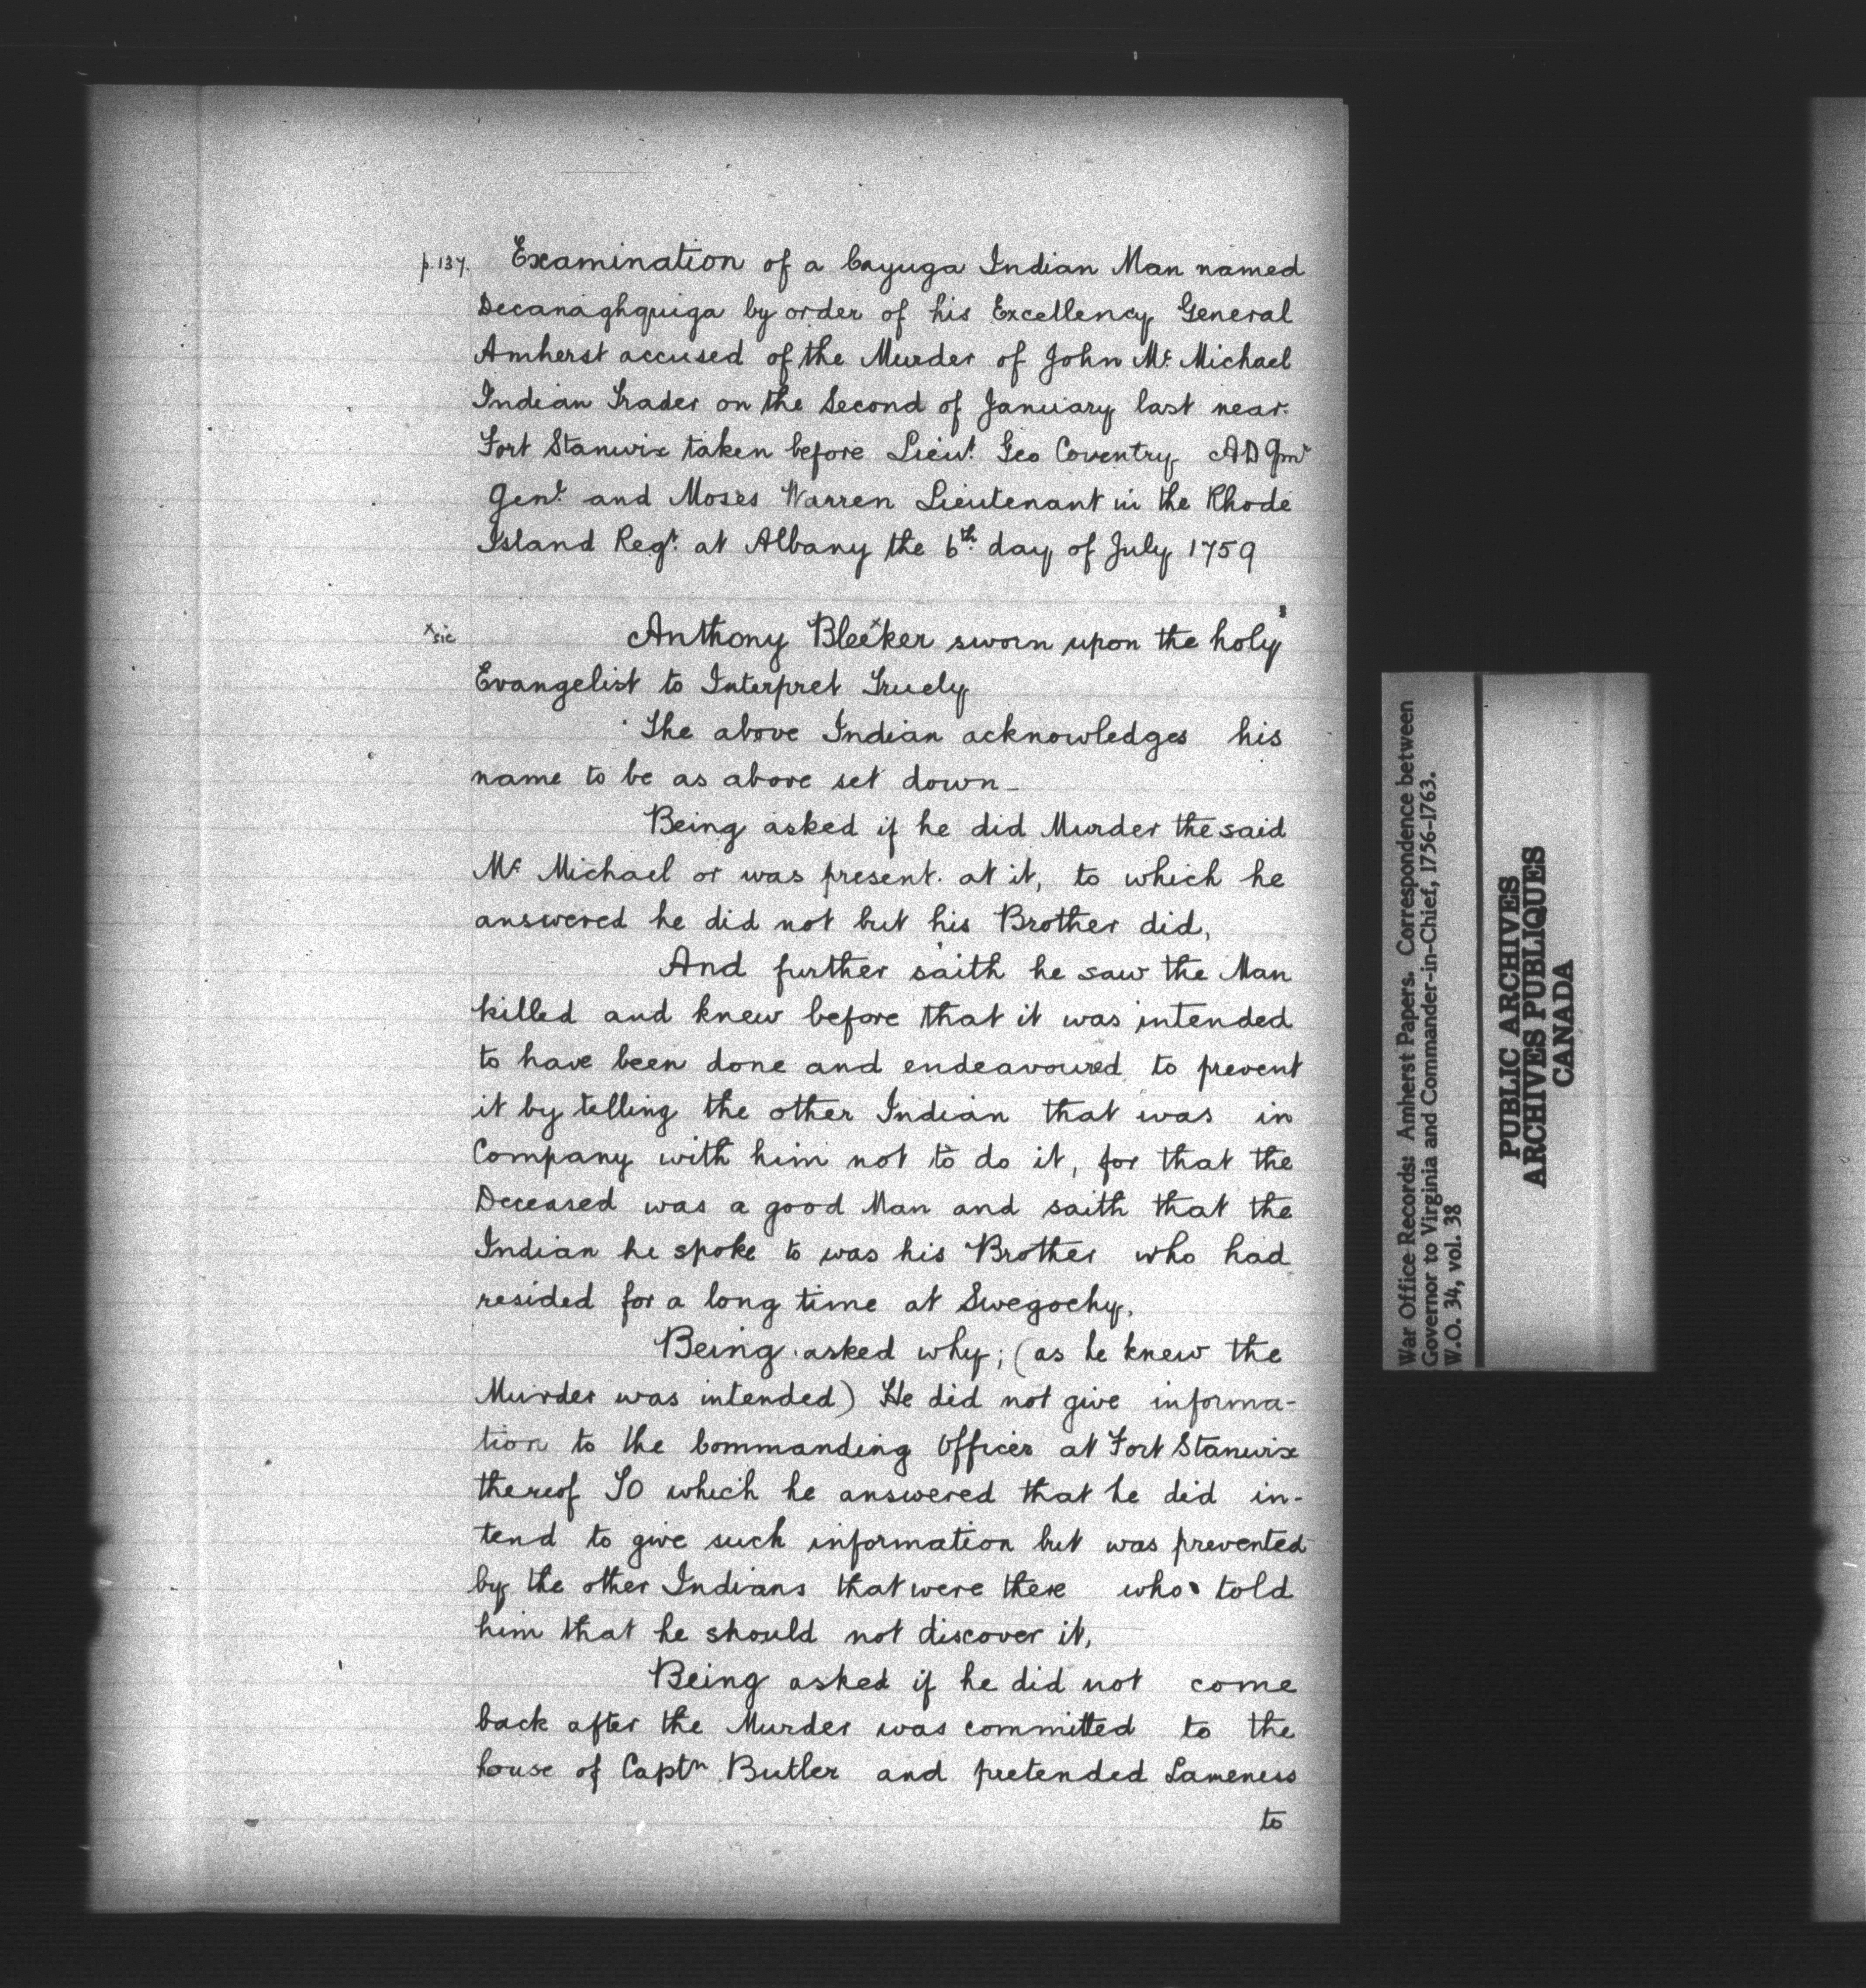 p. 137. Examination of a Cayuga Indian Man named
Decanaghquiga by order of his Excellency General
Amherst accused of the Murder of John Mc Michael
Indian Trader on the Second of January last near
Fort Stanwix taken before Lieut. Geo Coventry AD Qmr
Genl. and Moses Warren Lieutenant in the Rhode
Island Regt. at Albany the 6th. day of July 1759
x sic Anthony Bleexker sworn upon the holy
Evangelist to Interpret Truely
The above Indian acknowledges his
name to be as above set down_
Being asked if he did Murder the said
Mc Michael or was present. at it, to which he
answered he did not but his Brother did,
And further saith he saw the Man
killed and knew before that it was intended
to have been done and endeavoured to prevent
it by telling the other Indian that was in
Company with him not to do it, for that the
Deceased was a good Man and saith that the
Indian he spoke to was his Brother who had
resided for a long time at Swegochy.
Being asked why; (as he knew the
Murder was intended) He did not give informa-
tion to the Commanding Officer at Fort Stanwix
thereof TO which he answered that he did in-
tend to give such information but was prevented
by the other Indians that were there who told
him that he should not discover it,
Being asked if he did not come
back after the Murder was committed to the
house of Captn. Butler and pretended Lameness
to
War Office Records: Amherst Papers. Correspondence between
Governor to Virginia and Commander-in-Chief, 1756-1763.
W.O. 34, vol. 38
PUBLIC ARCHIVES
ARCHIVES PUBLIQUES
CANADA